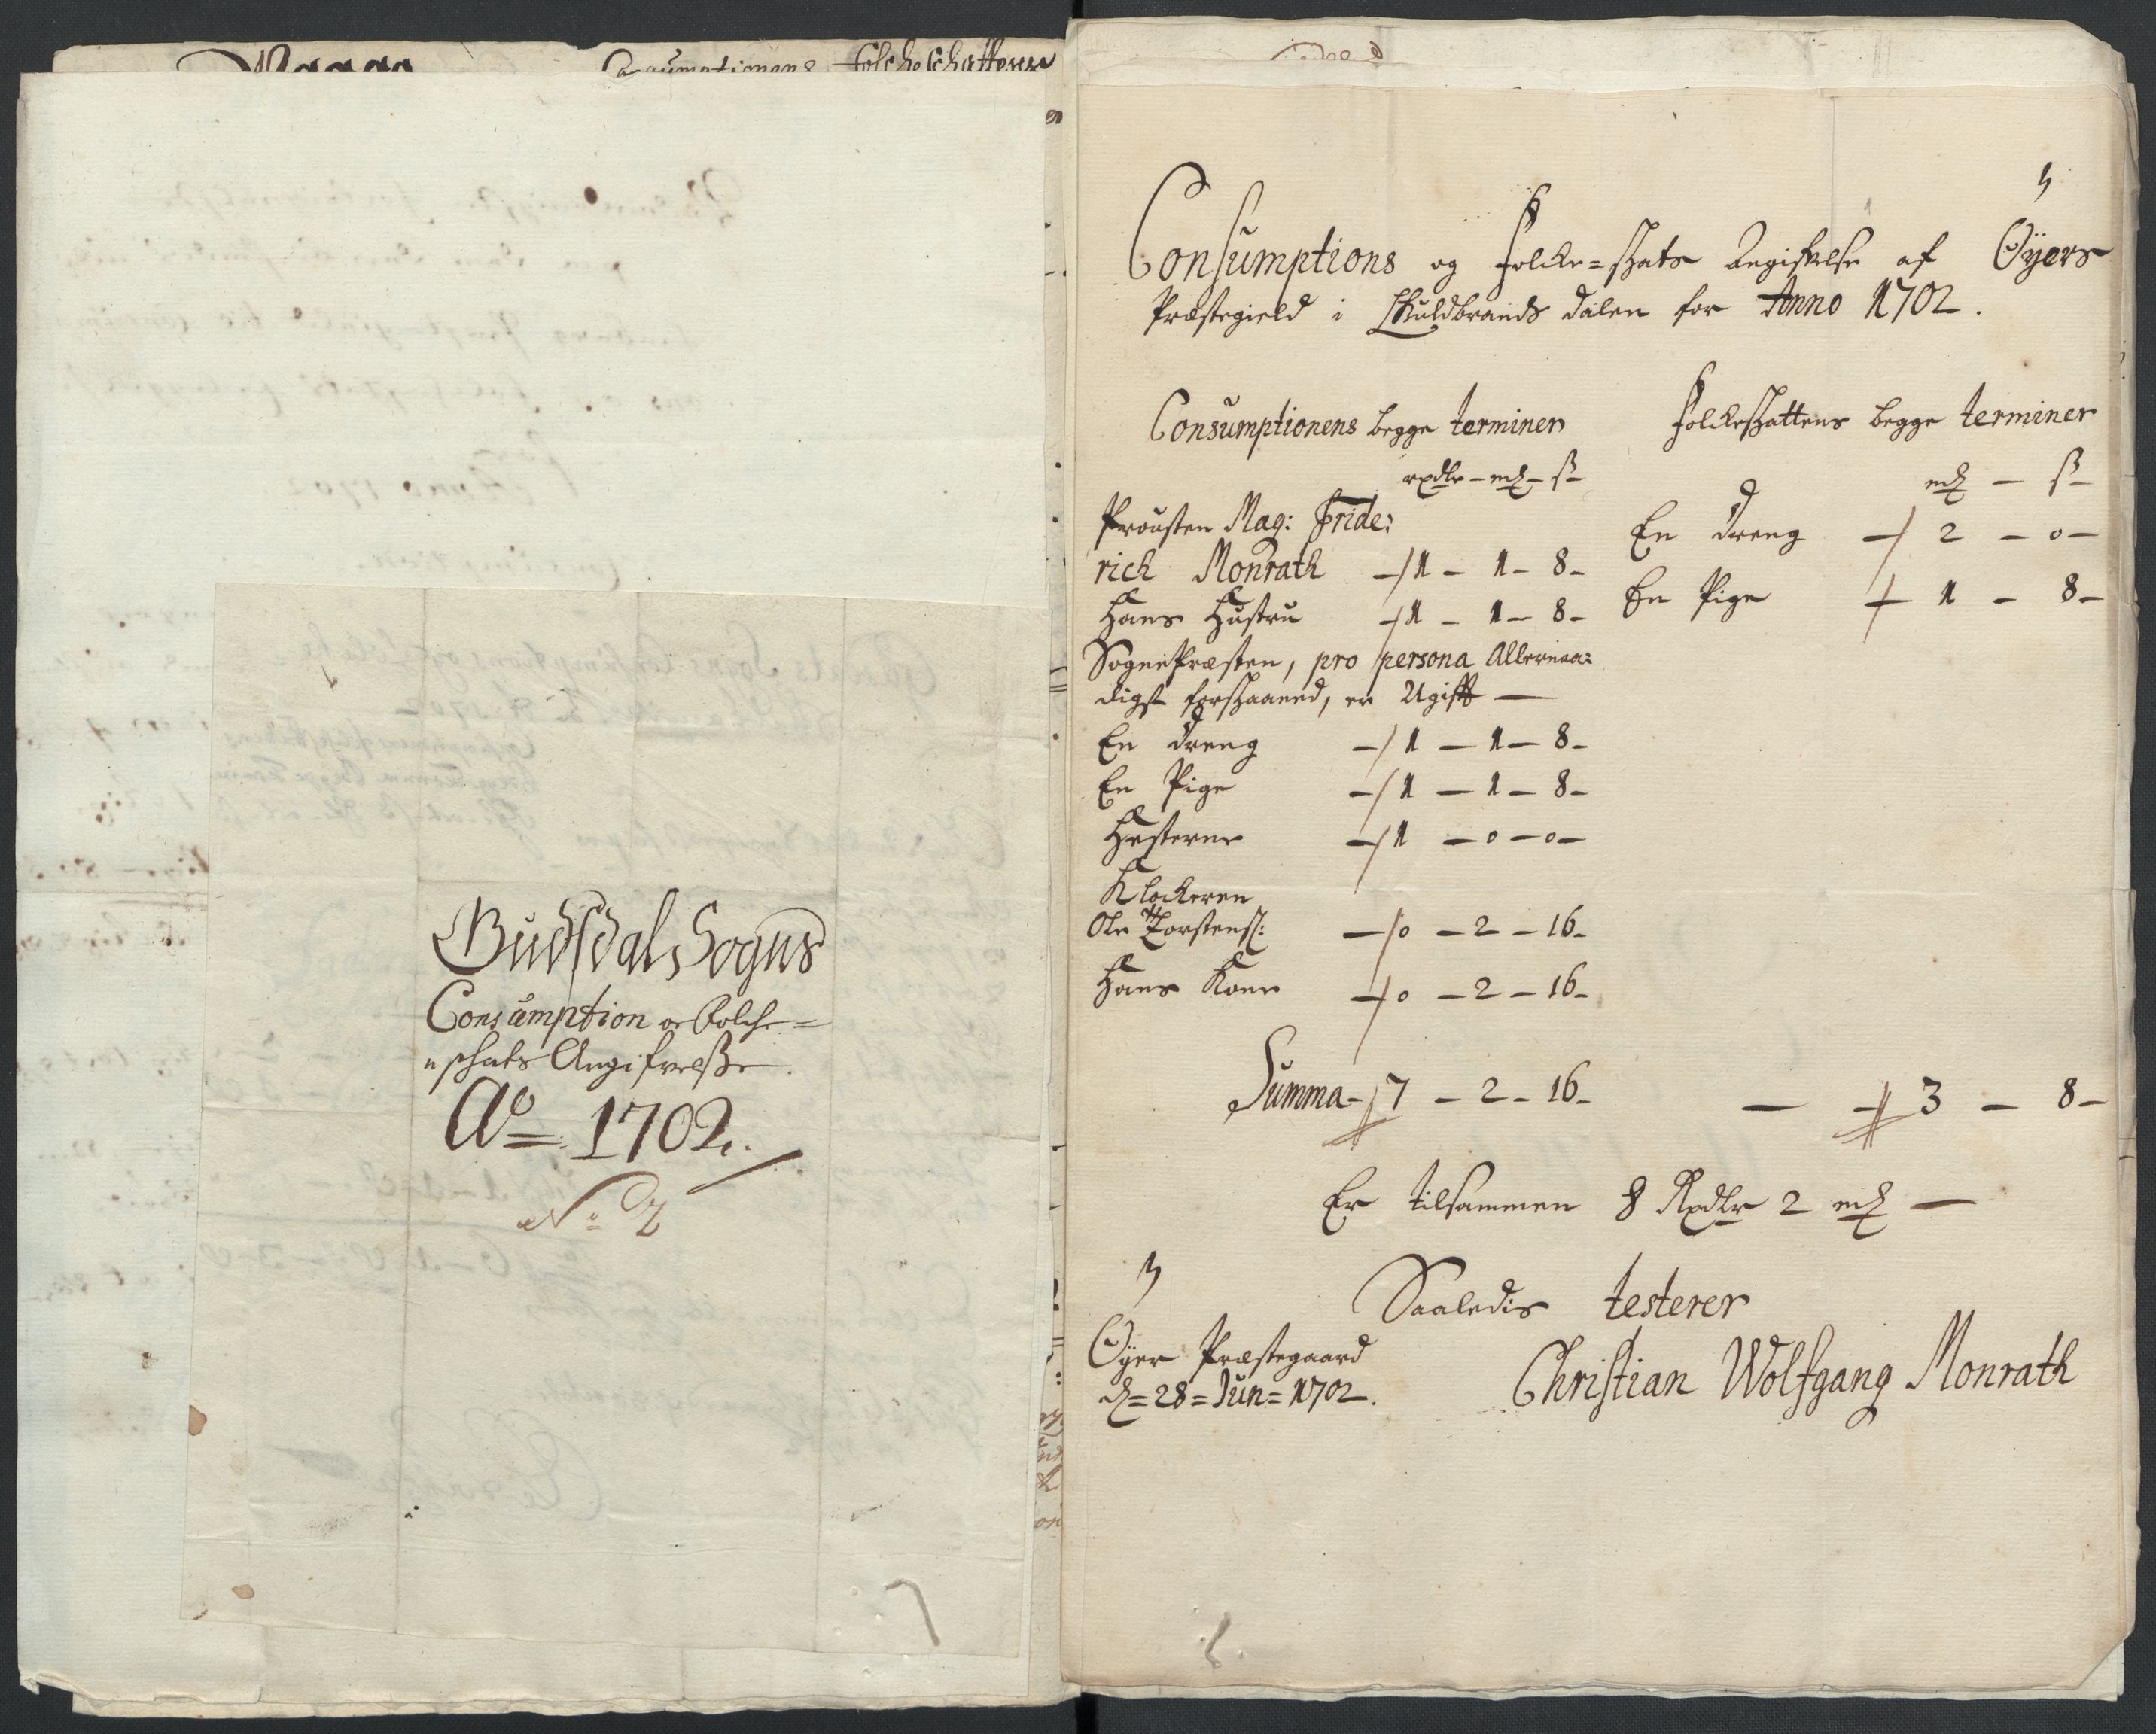 Consumptionens Folcheschattens
Gudsdals Sogns
Consumption oc Folche=
schats Angifvelsse.
Ao 1702.
No 2
Consumptions og Folcke=skats Angifvelse af Øyers
Præstegield i Guldbrands Dalen for Anno 1702.
Consumptionens begge terminer
rxdlr – mk – ß
Prousten Mag: Fride:
rick Monrath – 1 – 1 – 8 –
Hans Hustru – 1 – 1 – 8 –
SognePræsten, pro persona Allernaa:
digst forskaaned, er Ugift –
En Dreng – 1 – 1 – 8 –
En Pige – 1 – 1 – 8 –
Hesterne – 1 – 0 – 0 –
Klockeren
Ole Torstens: – 0 – 2 – 16 –
Hans Kone – 0 – 2 – 16 –
Summa – 7 – 2 – 16 –
Folckeskattens begge terminer
mk – ß
En Dreng – 2 – 0 –
En Pige – 1 – 8 –
– 3 – 8 –
Er tilsammen 8 Rxdlr 2 mk –
Saaledis testerer
Øyer Præstegaard
d = 28 = Jun = 1702.
Christian Wolfgang Monrath